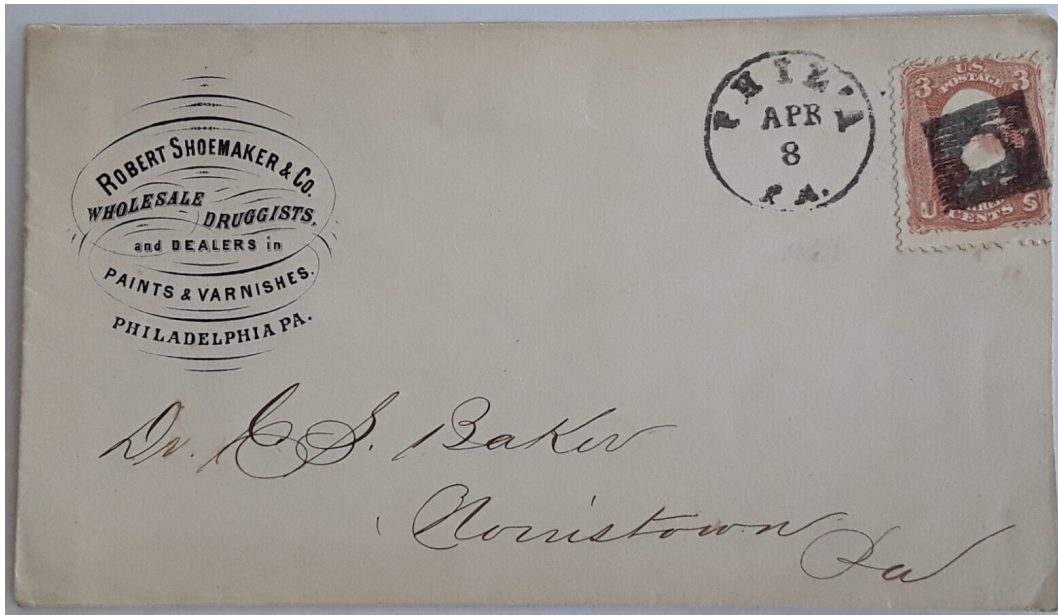 ROBERT SHOEMAKER & CO.
WHOLESALE
DRUGGISTS,
and DEALERS in
PAINTS & VARNISHES.
PHILADELPHIA PA.
PHIL'A
APR
8
PA.
3 U.S. 3
POSTAGE
U S
CENTS
Dr. C. S. Baker
Norristown
Pa